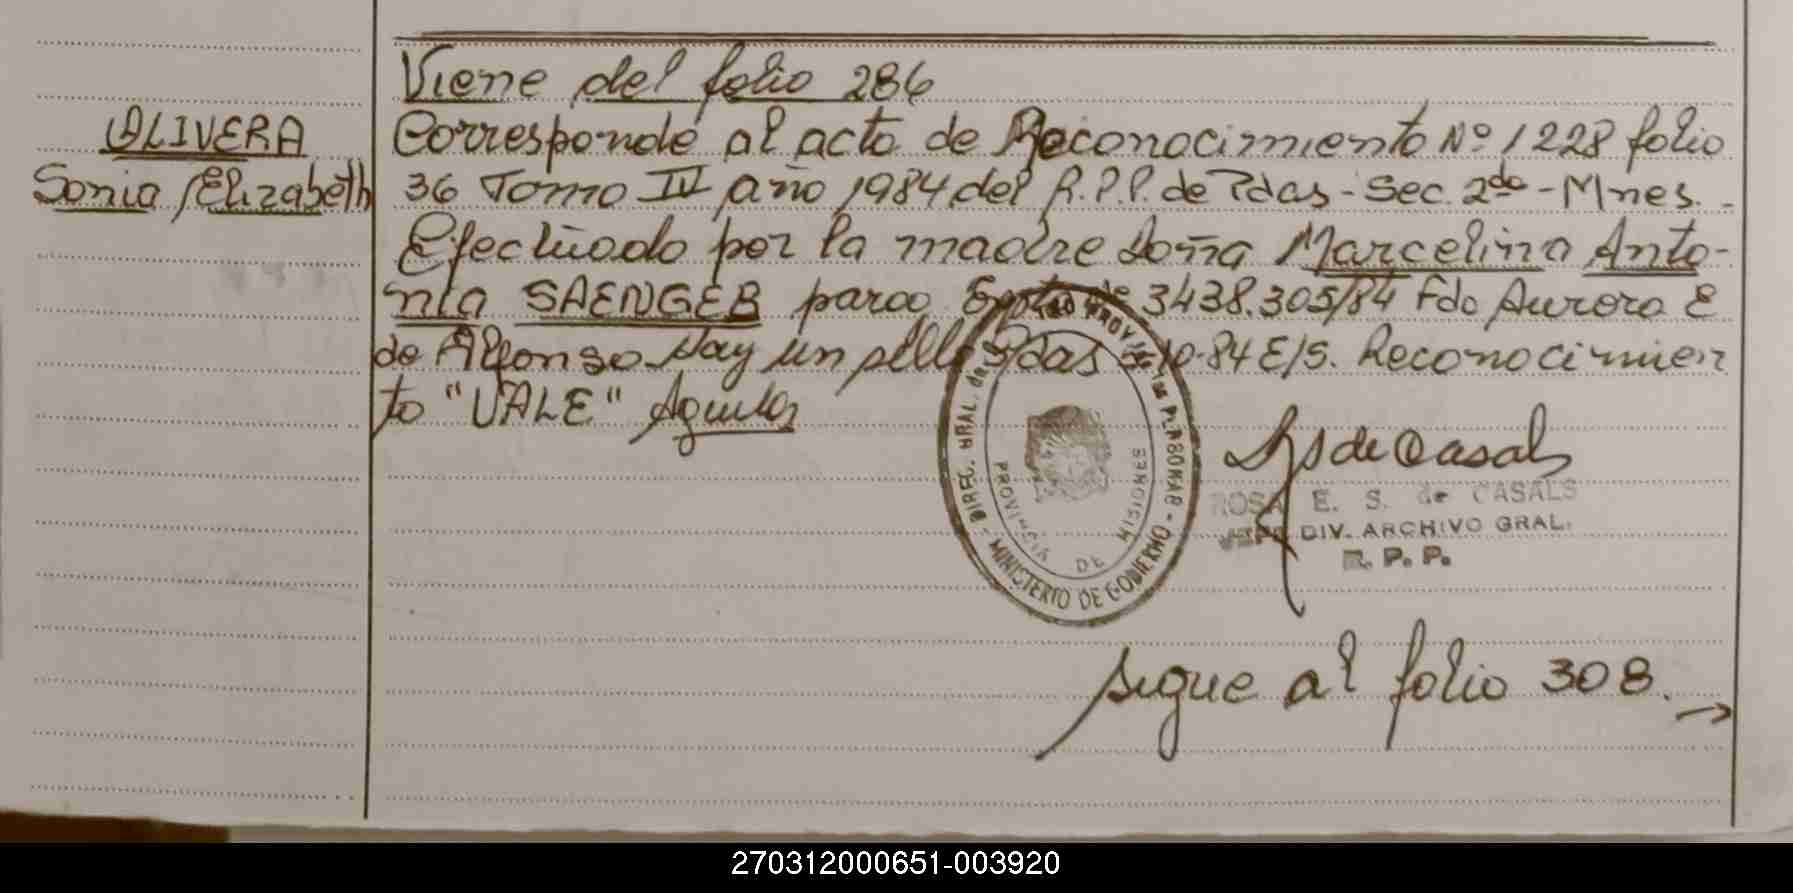 Viene del folio 286
OLIVERA
Sonia Elizabeth
Corresponde al acta de Reconocimiento Nº 1228 folio
36 Tomo IV año 1984 del R.P.P. de Pdas - Sec. 2da - Mnes. -
Efectuado por la madre doña Marcelina Anto-
nia SAENGER Expte Nº 3438.305/84 Fdo Aurora E
de Alfonso Hay un sello Pdas 10-84 E/S. Reconocimien
to "VALE" Aguilar
DIREC. GRAL. del REG. PROV. de las PERSONAS - MINISTERIO DE GOBIERNO -
PROVINCIA DE MISIONES
S de Casals
ROSA E. S. de CASALS
JEFE DIV. ARCHIVO GRAL.
R. P. P.
sigue al folio 308. →
270312000651-003920